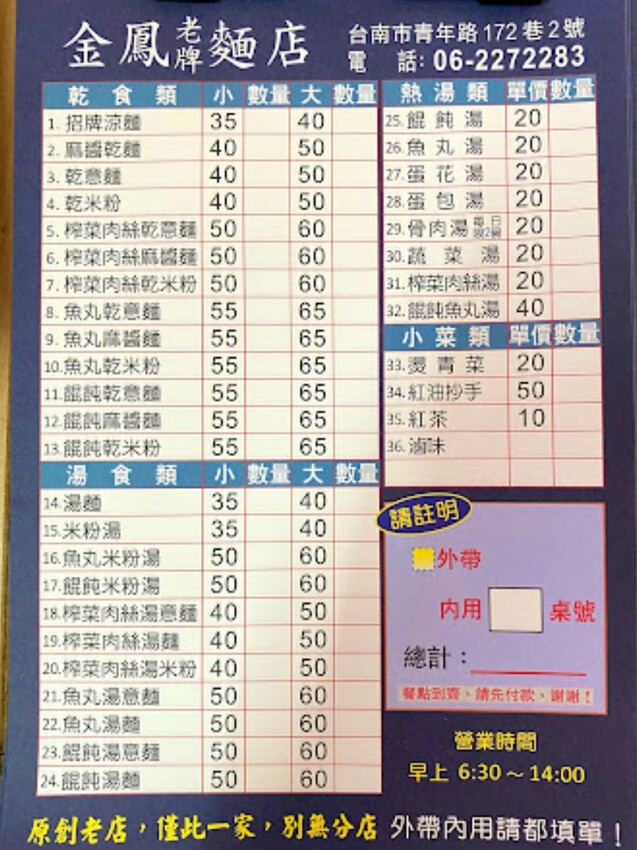 金鳳老牌麵店
台南市青年路172巷2號
電 話: 06-2272283
乾食類 小 數量 大 數量
1. 招牌涼麵 35 40
2. 麻醬乾麵 40 50
3. 乾意麵 40 50
4. 乾米粉 40 50
5. 榨菜肉絲乾意麵 50 60
6. 榨菜肉絲麻醬麵 50 60
7. 榨菜肉絲乾米粉 50 60
8. 魚丸乾意麵 55 65
9. 魚丸麻醬麵 55 65
10. 魚丸乾米粉 55 65
11. 餛飩乾意麵 55 65
12. 餛飩麻醬麵 55 65
13. 餛飩乾米粉 55 65
湯食類 小 數量 大 數量
14. 湯麵 35 40
15. 米粉湯 35 40
16. 魚丸米粉湯 50 60
17. 餛飩米粉湯 50 60
18. 榨菜肉絲湯意麵 40 50
19. 榨菜肉絲湯麵 40 50
20. 榨菜肉絲湯米粉 40 50
21. 魚丸湯意麵 50 60
22. 魚丸湯麵 50 60
23. 餛飩湯意麵 50 60
24. 餛飩湯麵 50 60
熱湯類 單價 數量
25. 餛飩湯 20
26. 魚丸湯 20
27. 蛋花湯 20
28. 蛋包湯 20
29. 骨肉湯 20
30. 蔬菜湯 20
31. 榨菜肉絲湯 20
32. 餛飩魚丸湯 40
小菜類 單價 數量
33. 燙青菜 20
34. 紅油抄手 50
35. 紅茶 10
36. 滷味
請註明
外帶
內用 桌號
總計：
餐點到齊，請先付款，謝謝！
營業時間
早上 6:30～14:00
原創老店，僅此一家，別無分店 外帶內用請都填單！